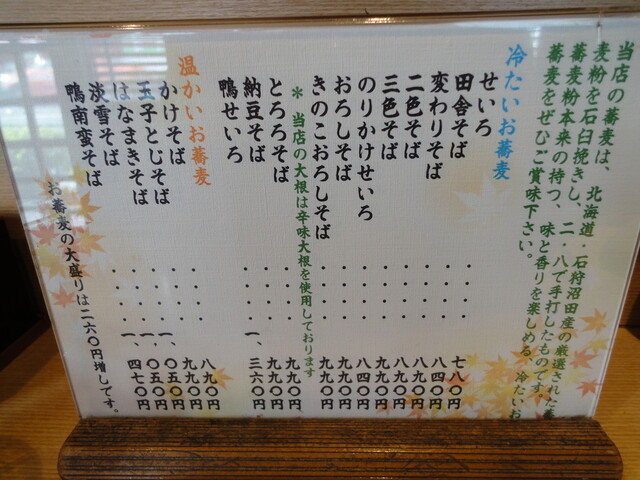 当店の蕎麦は、北海道・石狩沼田産の厳選された蕎
麦粉を石臼挽きし、二・八で手打したものです。
蕎麦粉本来の持つ、味と香りを楽しめる、冷たいお
蕎麦をぜひご賞味下さい。
冷たいお蕎麦
せいろ・・・・七八〇円
田舎そば・・・・八四〇円
変わりそば・・・・八九〇円
二色そば・・・・九九〇円
三色そば・・・・九九〇円
のりかけせいろ・・・・八四〇円
おろしそば・・・・九九〇円
きのこおろしそば・・・・九九〇円
＊当店の大根は辛味大根を使用しております
とろろそば・・・・九九〇円
納豆そば・・・・九九〇円
鴨せいろ・・・・一、三六〇円
温かいお蕎麦
かけそば・・・・八九〇円
玉子とじそば・・・・九九〇円
はなまきそば・・・・一、〇五〇円
淡雪そば・・・・一、〇五〇円
鴨南蛮そば・・・・一、四七〇円
お蕎麦の大盛りは二六〇円増しです。